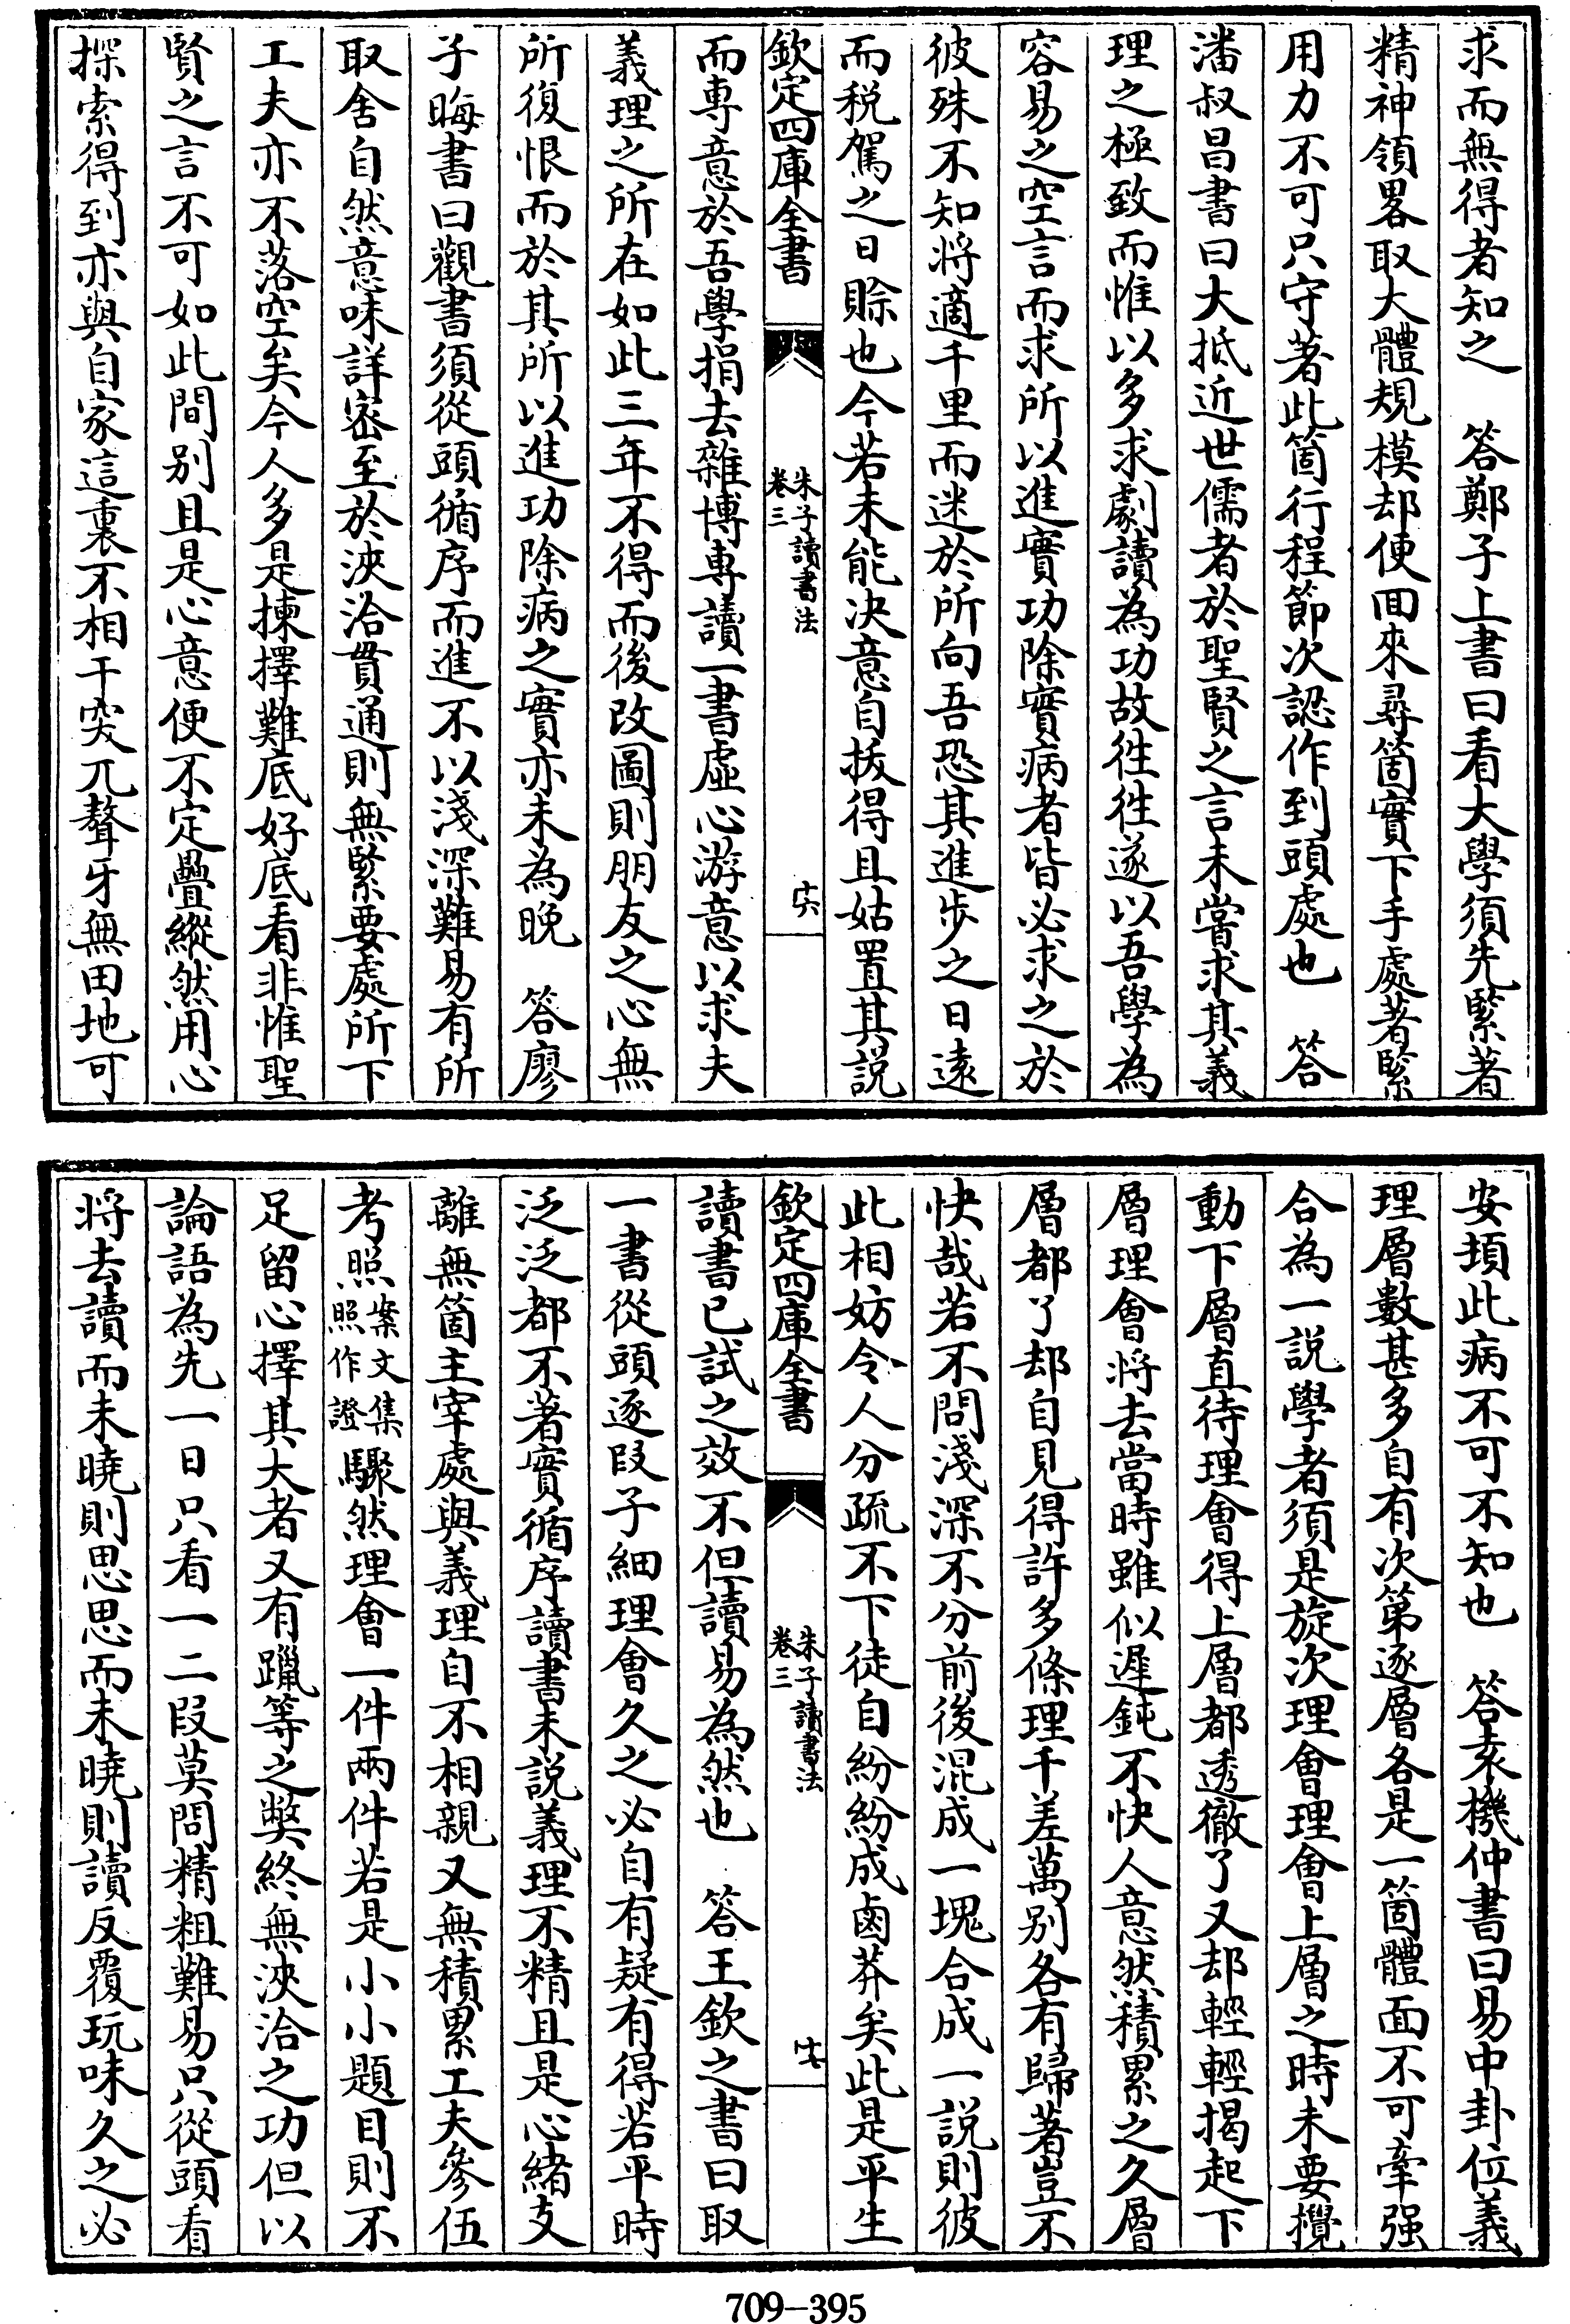 求而無得者知之　答鄭子上書曰看大學須先緊著
精神領畧取大體規模却便回來尋箇實下手處著緊
用力不可只守著此箇行程節次認作到頭處也　答
潘叔昌書曰大抵近世儒者於聖賢之言未嘗求其義
理之極致而惟以多求劇讀為功故徃徃遂以吾學為
容易之空言而求所以進實功除實病者皆必求之於
彼殊不知將適千里而迷於所向吾恐其進步之日逺
而税駕之日賒也今若未能决意自拔得且姑置其説
欽定四庫全書
朱子讀書法
卷三
十六
而専意於吾學捐去雜博専讀一書虚心游意以求夫
義理之所在如此三年不得而後改圖則朋友之心無
所復恨而於其所以進功除病之實亦未為晚　答廖
子晦書曰觀書須從頭循序而進不以淺深難易有所
取舍自然意味詳宻至於浹洽貫通則無緊要處所下
工夫亦不落空矣今人多是揀擇難底好底看非惟聖
賢之言不可如此間别且是心意便不定疊縱然用心
探索得到亦與自家這裏不相干突兀聱牙無田地可
安頓此病不可不知也　答袁機仲書曰易中卦位義
理層數甚多自有次第逐層各是一箇體面不可牽强
合為一説學者須是旋次理會理會上層之時未要攪
動下層直待理會得上層都透徹了又却輕輕揭起下
層理會將去當時雖似遲鈍不快人意然積累之久層
層都了却自見得許多條理千差萬别各有歸著豈不
快哉若不問淺深不分前後混成一塊合成一説則彼
此相妨令人分疏不下徒自紛紛成鹵莽矣此是平生
欽定四庫全書
朱子讀書法
卷三
十七
讀書已試之效不但讀易為然也　答王欽之書曰取
一書從頭逐段子細理會久之必自有疑有得若平時
泛泛都不著實循序讀書未説義理不精且是心緒支
離無箇主宰處與義理自不相親又無積累工夫參伍
考照案文集照作證驟然理會一件兩件若是小小題目則不
足留心擇其大者又有躐等之獘終無浹洽之功但以
論語為先一日只看一二段莫問精粗難易只從頭看
將去讀而未曉則思思而未曉則讀反覆玩味久之必
709-395